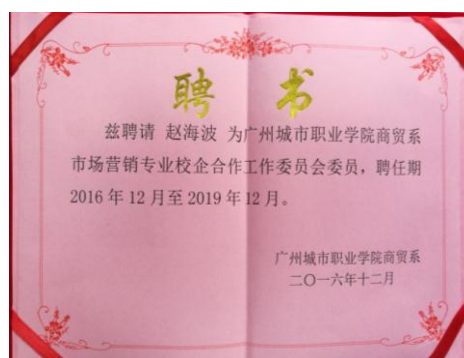 聘 书
兹聘请 赵海波 为广州城市职业学院商贸系
市场营销专业校企合作工作委员会委员，聘任期
2016年12月至2019年12月。
广州城市职业学院商贸系
二〇一六年十二月